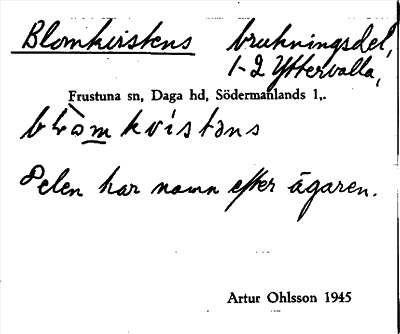 Blomkvistens brukningsdel,
1-2 Yttervalla,
Frustuna sn, Daga hd, Södermanlands l,.
blòmkvistəns
Delen har namn efter ägaren.
Artur Ohlsson 1945